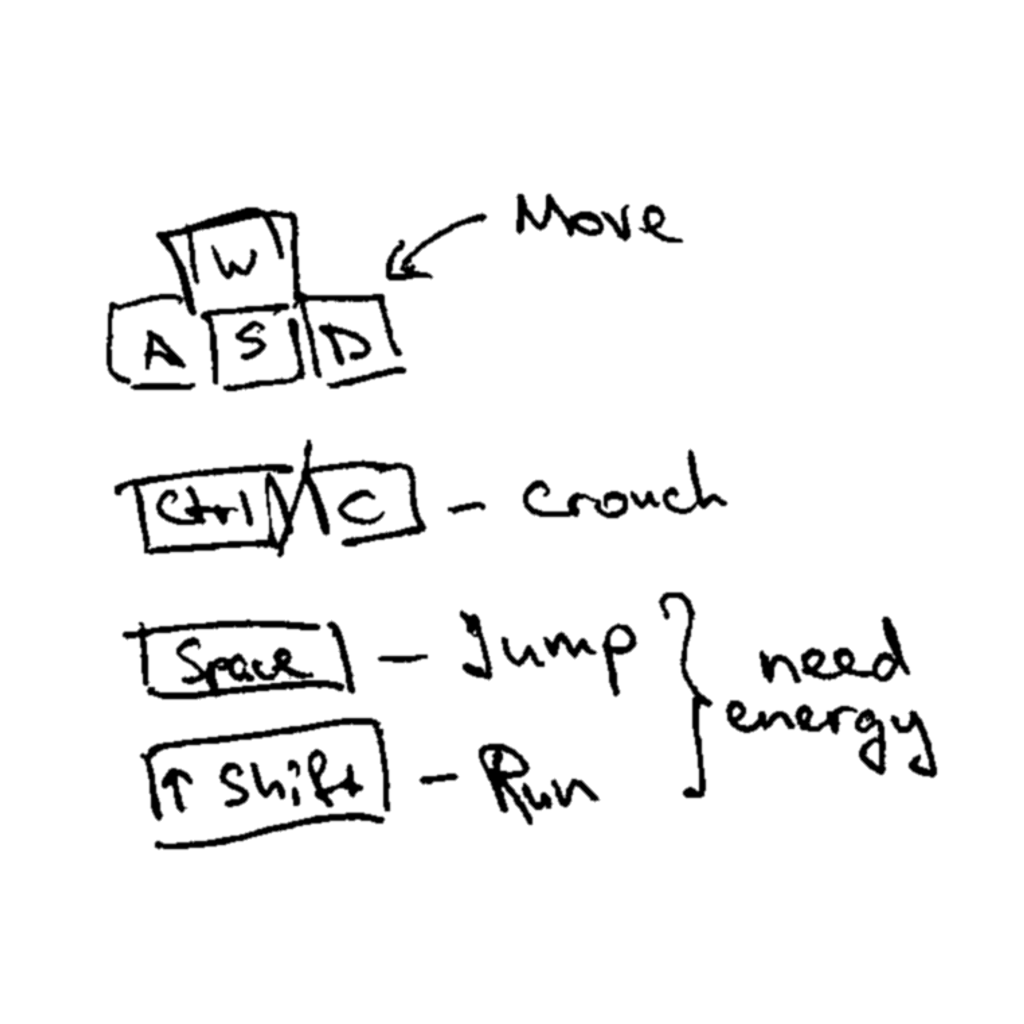 Move
W
A S D
Ctrl / C - Crouch
Space - Jump
↑ Shift - Run
need
energy